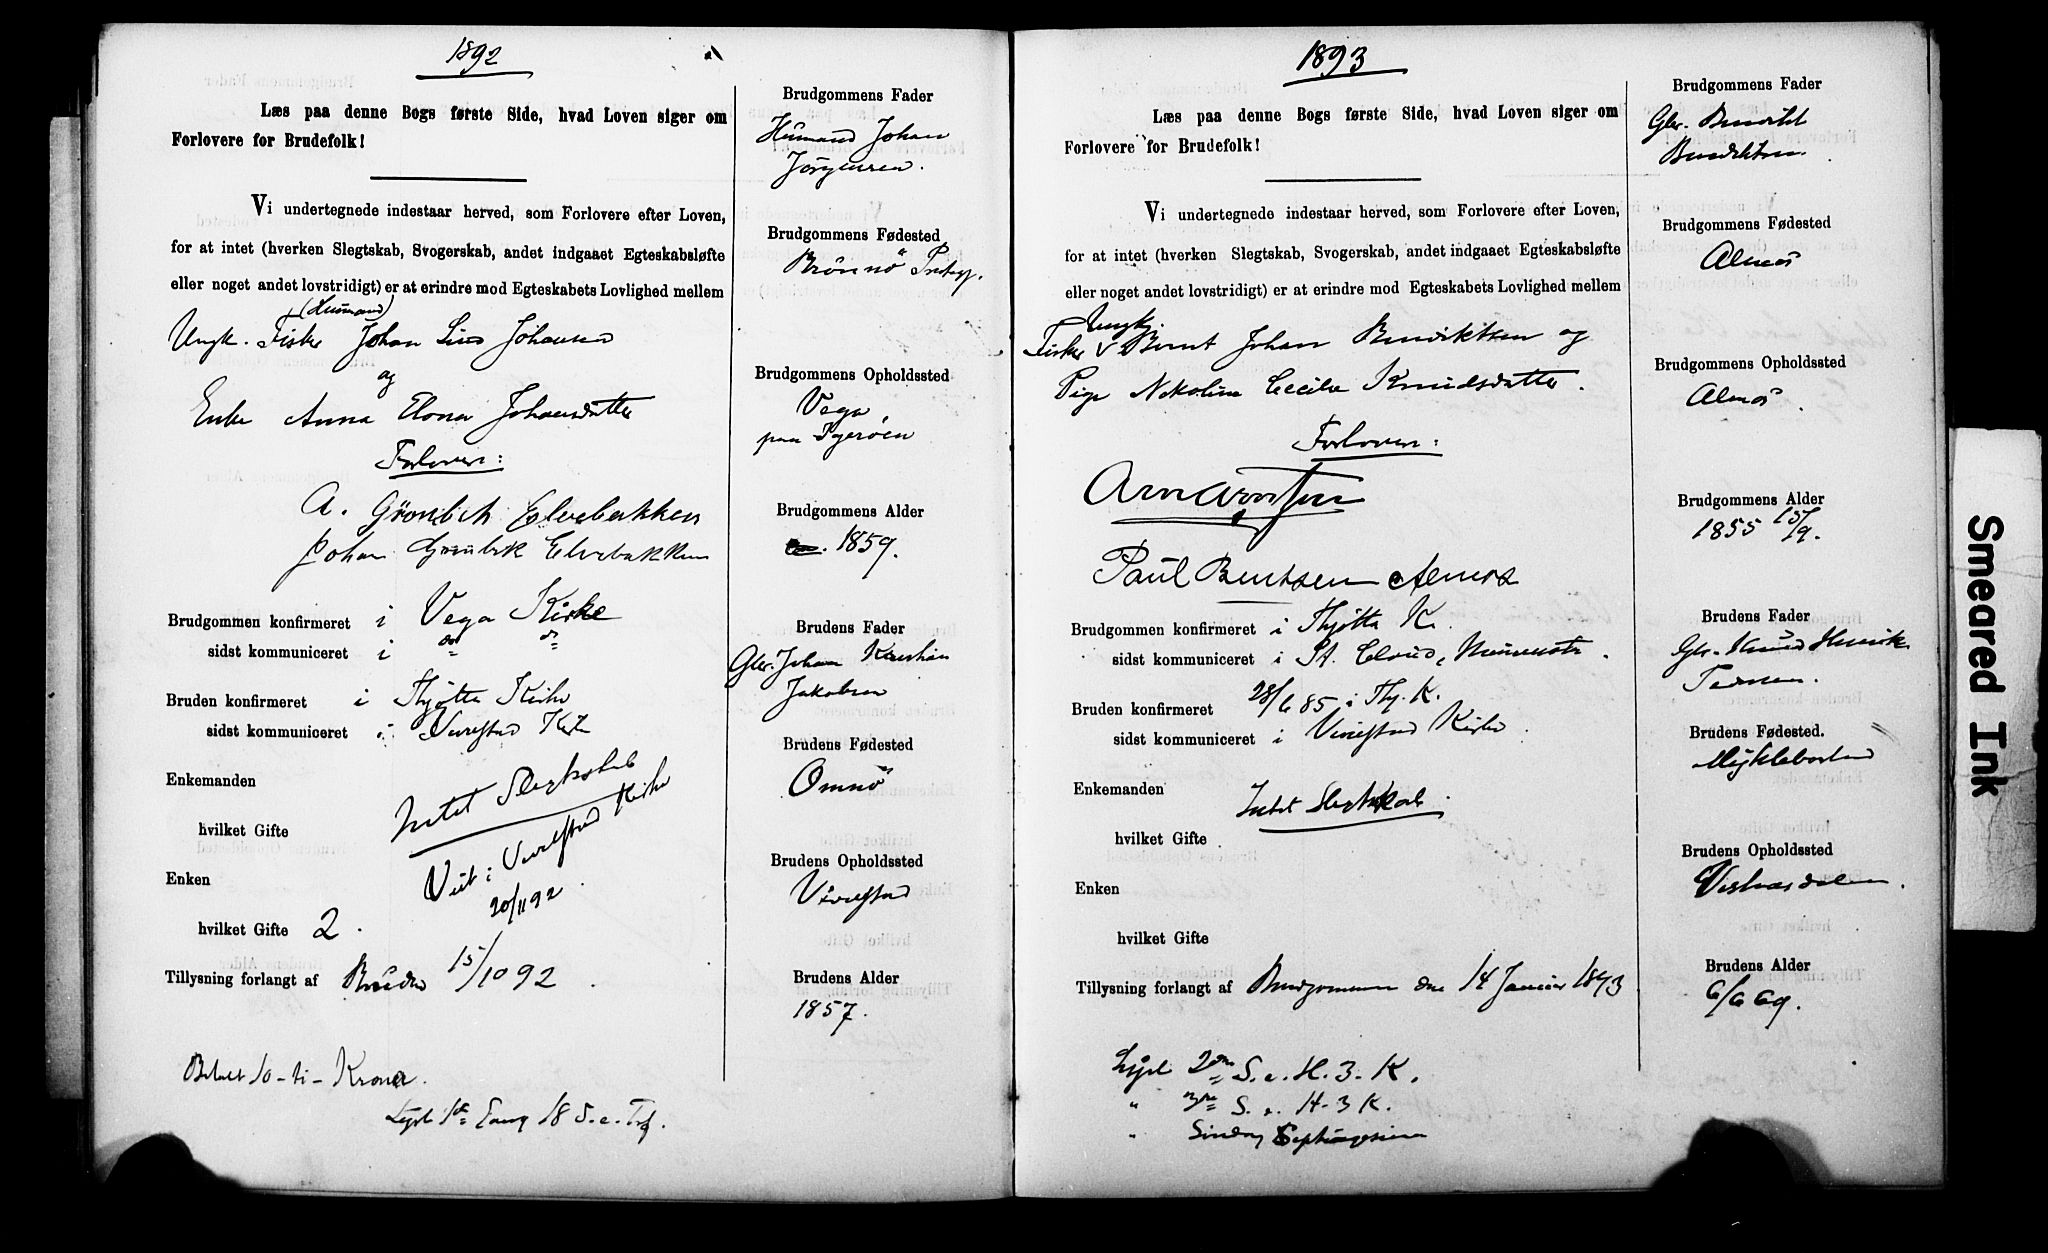 1892
Læs paa denne Bogs første Side, hvad Loven siger om
Forlovere for Brudefolk!
Vi undertegnede indestaar herved, som Forlovere efter Loven,
for at intet (hverken Slegtskab, Svogerskab, andet indgaaet Egteskabsløfte
eller noget andet lovstridigt) er at erindre mod Egteskabets Lovlighed mellem
(Husmand)
Ungk. Fisker Johan Johansen
og
Enke Anna Elona Johansdatter
Forlovere:
A. Grönbek Elvebakken
Johan Grönbek Elvebakken
Brudgommen konfirmeret i Vega Kirke
sidst kommuniceret i do do
Bruden konfirmeret i Thjøtta Kirke
sidst kommuniceret i Vevelstad Kirke
Enkemanden
hvilket Gifte
Intet Slegtskab
Viet i Vevelstad Kirke
20/11 92
Enken
hvilket Gifte 2.
Tillysning forlangt af Bruden 15/10 92
Betalt 10 - ti - Kroner.
Lyst 1ste Gang 18 S. e. Tref.
Brudgommens Fader
Husmand Johan
Jørgensen.
Brudgommens Fødested
Brönnö Prstegj.
Brudgommens Opholdssted
Vega,
paa Ygerøen
Brudgommens Alder
1859.
Brudens Fader
Gbr. Johan Kristian
Jakobsen
Brudens Fødested
Omnö
Brudens Opholdssted
Vevelstad
Brudens Alder
1857.
1893
Læs paa denne Bogs første Side, hvad Loven siger om
Forlovere for Brudefolk!
Vi undertegnede indestaar herved, som Forlovere efter Loven,
for at intet (hverken Slegtskab, Svogerskab, andet indgaaet Egteskabsløfte
eller noget andet lovstridigt) er at erindre mod Egteskabets Lovlighed mellem
Ungkj.
Fisker v Bernt Johan Bendiktsen og
Pige Nikoline Cecilie Knudsdatter.
Forlovere:
Arn Arntsen
Paul Bentsen Almos
Brudgommen konfirmeret i Thjøtta K.
sidst kommuniceret i St. Cloud, Minnesota.
Bruden konfirmeret 28/6 85 i Thj. K.
sidst kommuniceret i Vevelstad Kirke.
Enkemanden
Intet Slegtskab.
hvilket Gifte
Enken
hvilket Gifte
Tillysning forlangt af Brudgommen den 14 Januar 1893
Lyst 2den S. e. H. 3. K.
" 3die S. e. H. 3 K.
" Søndag Septuagesima
Brudgommens Fader
Gbr. Bendikt
Bendiktsen.
Brudgommens Fødested
Almos
Brudgommens Opholdssted
Almos.
Brudgommens Alder
1855 15/9.
Brudens Fader
Gbr. Knud Henrik
Brudens Fødested.
Myklebostad
Brudens Opholdssted
Visthusdalen.
Brudens Alder
6/6 69.
Smeared Ink